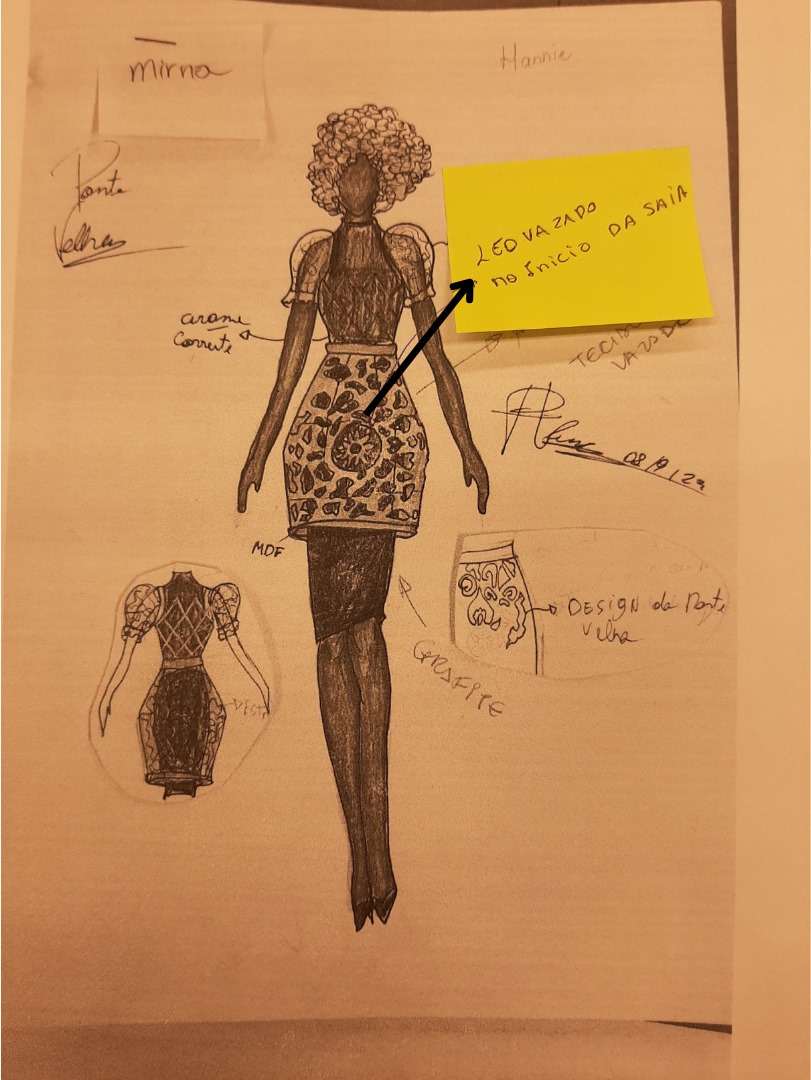 mirna
Hannie
Ponte
Velha
LED VAZADO
no Início DA SAIA
arame
Corrente
TECIDO
VAZADO
08/9/23
MDF
DESIGN da Ponte
Velha
GRAFITE